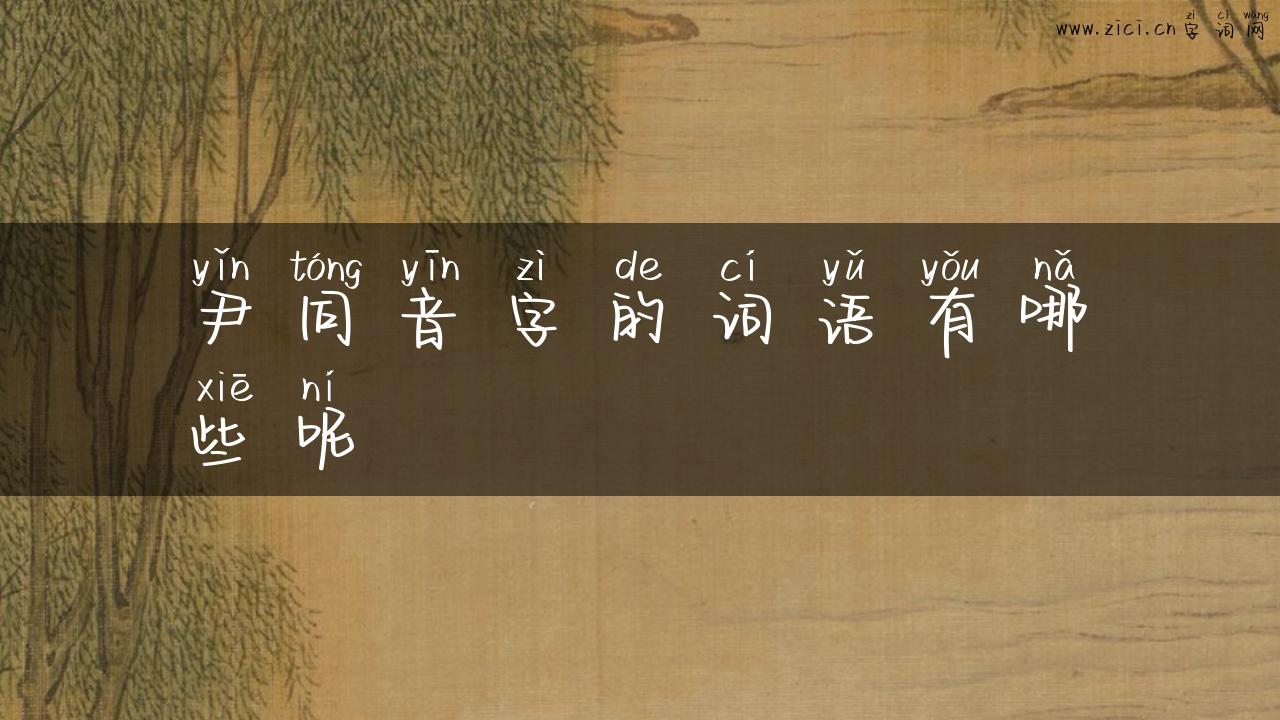 zì cí wǎng
www.zici.cn 字词网
yǐn tóng yīn zì de cí yǔ yǒu nǎ
尹同音字的词语有哪
xiē ní
些呢